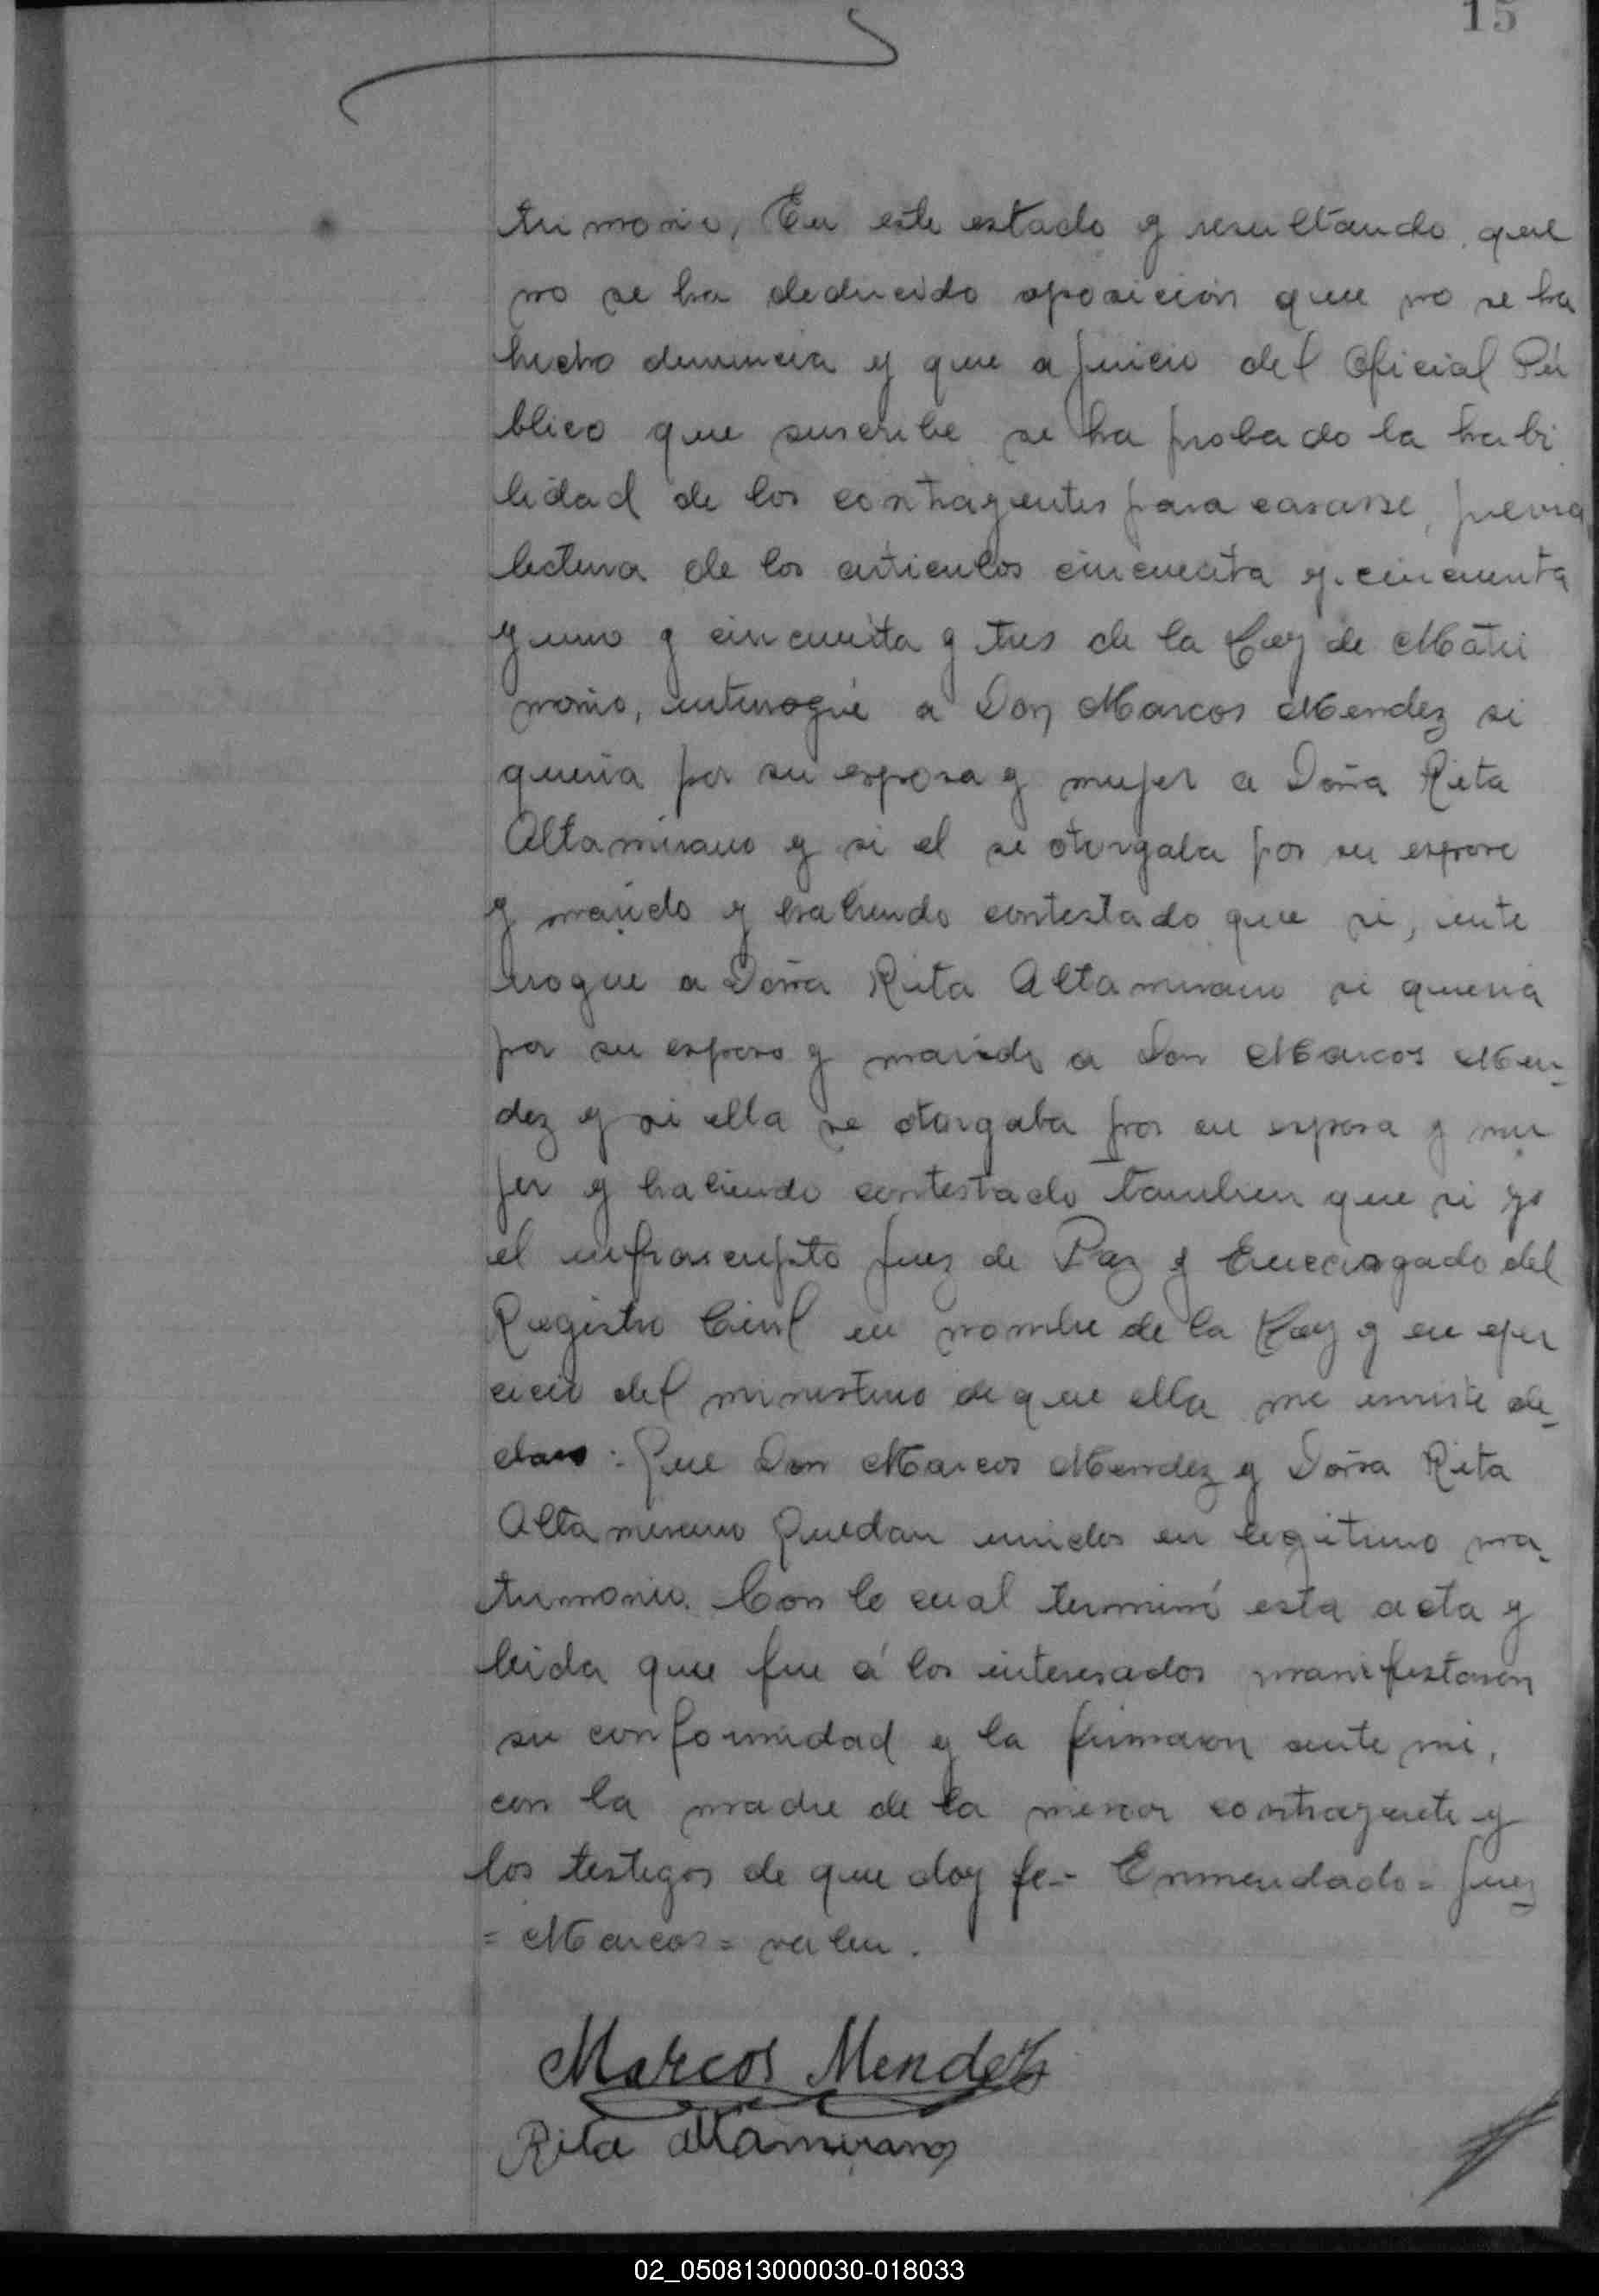 15
trimonio, En este estado y resultando que
no se ha deducido oposición que no se ha
hecho denuncia y que a juicio del Oficial Pú
blico que suscribe se ha probado la habi
lidad de los contrayentes para casarse, previa
lectura de los articulos cincuenta y cincuenta
y uno y cincuenta y tres de la Ley de Matri
monio, interrogué a Don Marcos Mendez si
queria por su esposa y mujer a Doña Rita
Altamirano y si el se otorgaba por su esposo
y marido y habiendo contestado que si, inte
rrogue a Doña Rita Altamirano si queria
por su esposo y marido a Don Marcos Men-
dez y si ella se otorgaba por su esposa y mu
jer y habiendo contestado tambien que si yo
el infrascripto Juez de Paz y Encargado del
Registro Civil en nombre de la Ley y en ejer
cicio del ministerio de que ella me inviste de-
claro: Que Don Marcos Mendez y Doña Rita
Altamirano Quedan unidos en legitimo ma-
trimonio. Con lo cual terminó esta acta y
leida que fue á los interesados manifestaron
su conformidad y la firmaron ante mi,
con la madre de la menor contrayente y
los testigos de que doy fe.- Enmendado = Juez
= Marcos = valen.
Marcos Mendez
Rita Altamirano
02_050813000030-018033